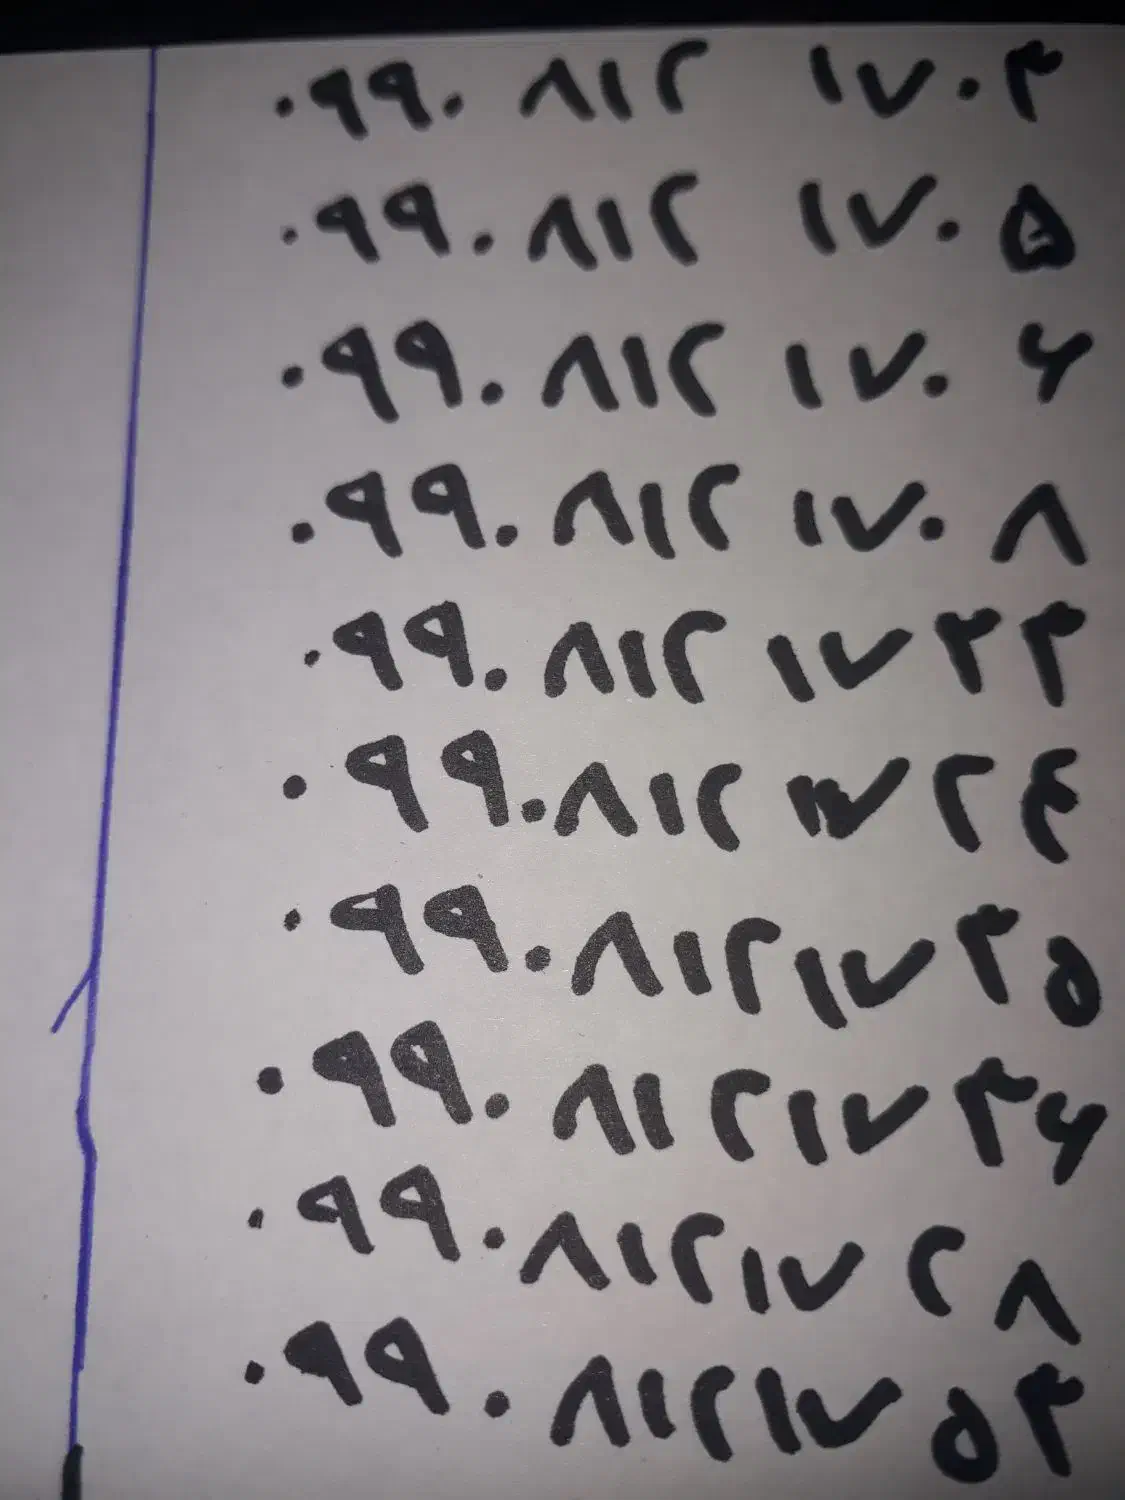 ۰۹۹۰ ۸۱۲ ۱۷۰۳
۰۹۹۰ ۸۱۲ ۱۷۰۵
۰۹۹۰ ۸۱۲ ۱۷۰۶
۰۹۹۰ ۸۱۲ ۱۷۰۸
۰۹۹۰ ۸۱۲ ۱۷۲۳
۰۹۹۰ ۸۱۲ ۱۷۲۴
۰۹۹۰ ۸۱۲ ۱۷۲۵
۰۹۹۰ ۸۱۲ ۱۷۲۶
۰۹۹۰ ۸۱۲ ۱۷۲۸
۰۹۹۰ ۸۱۲ ۱۷۵۳